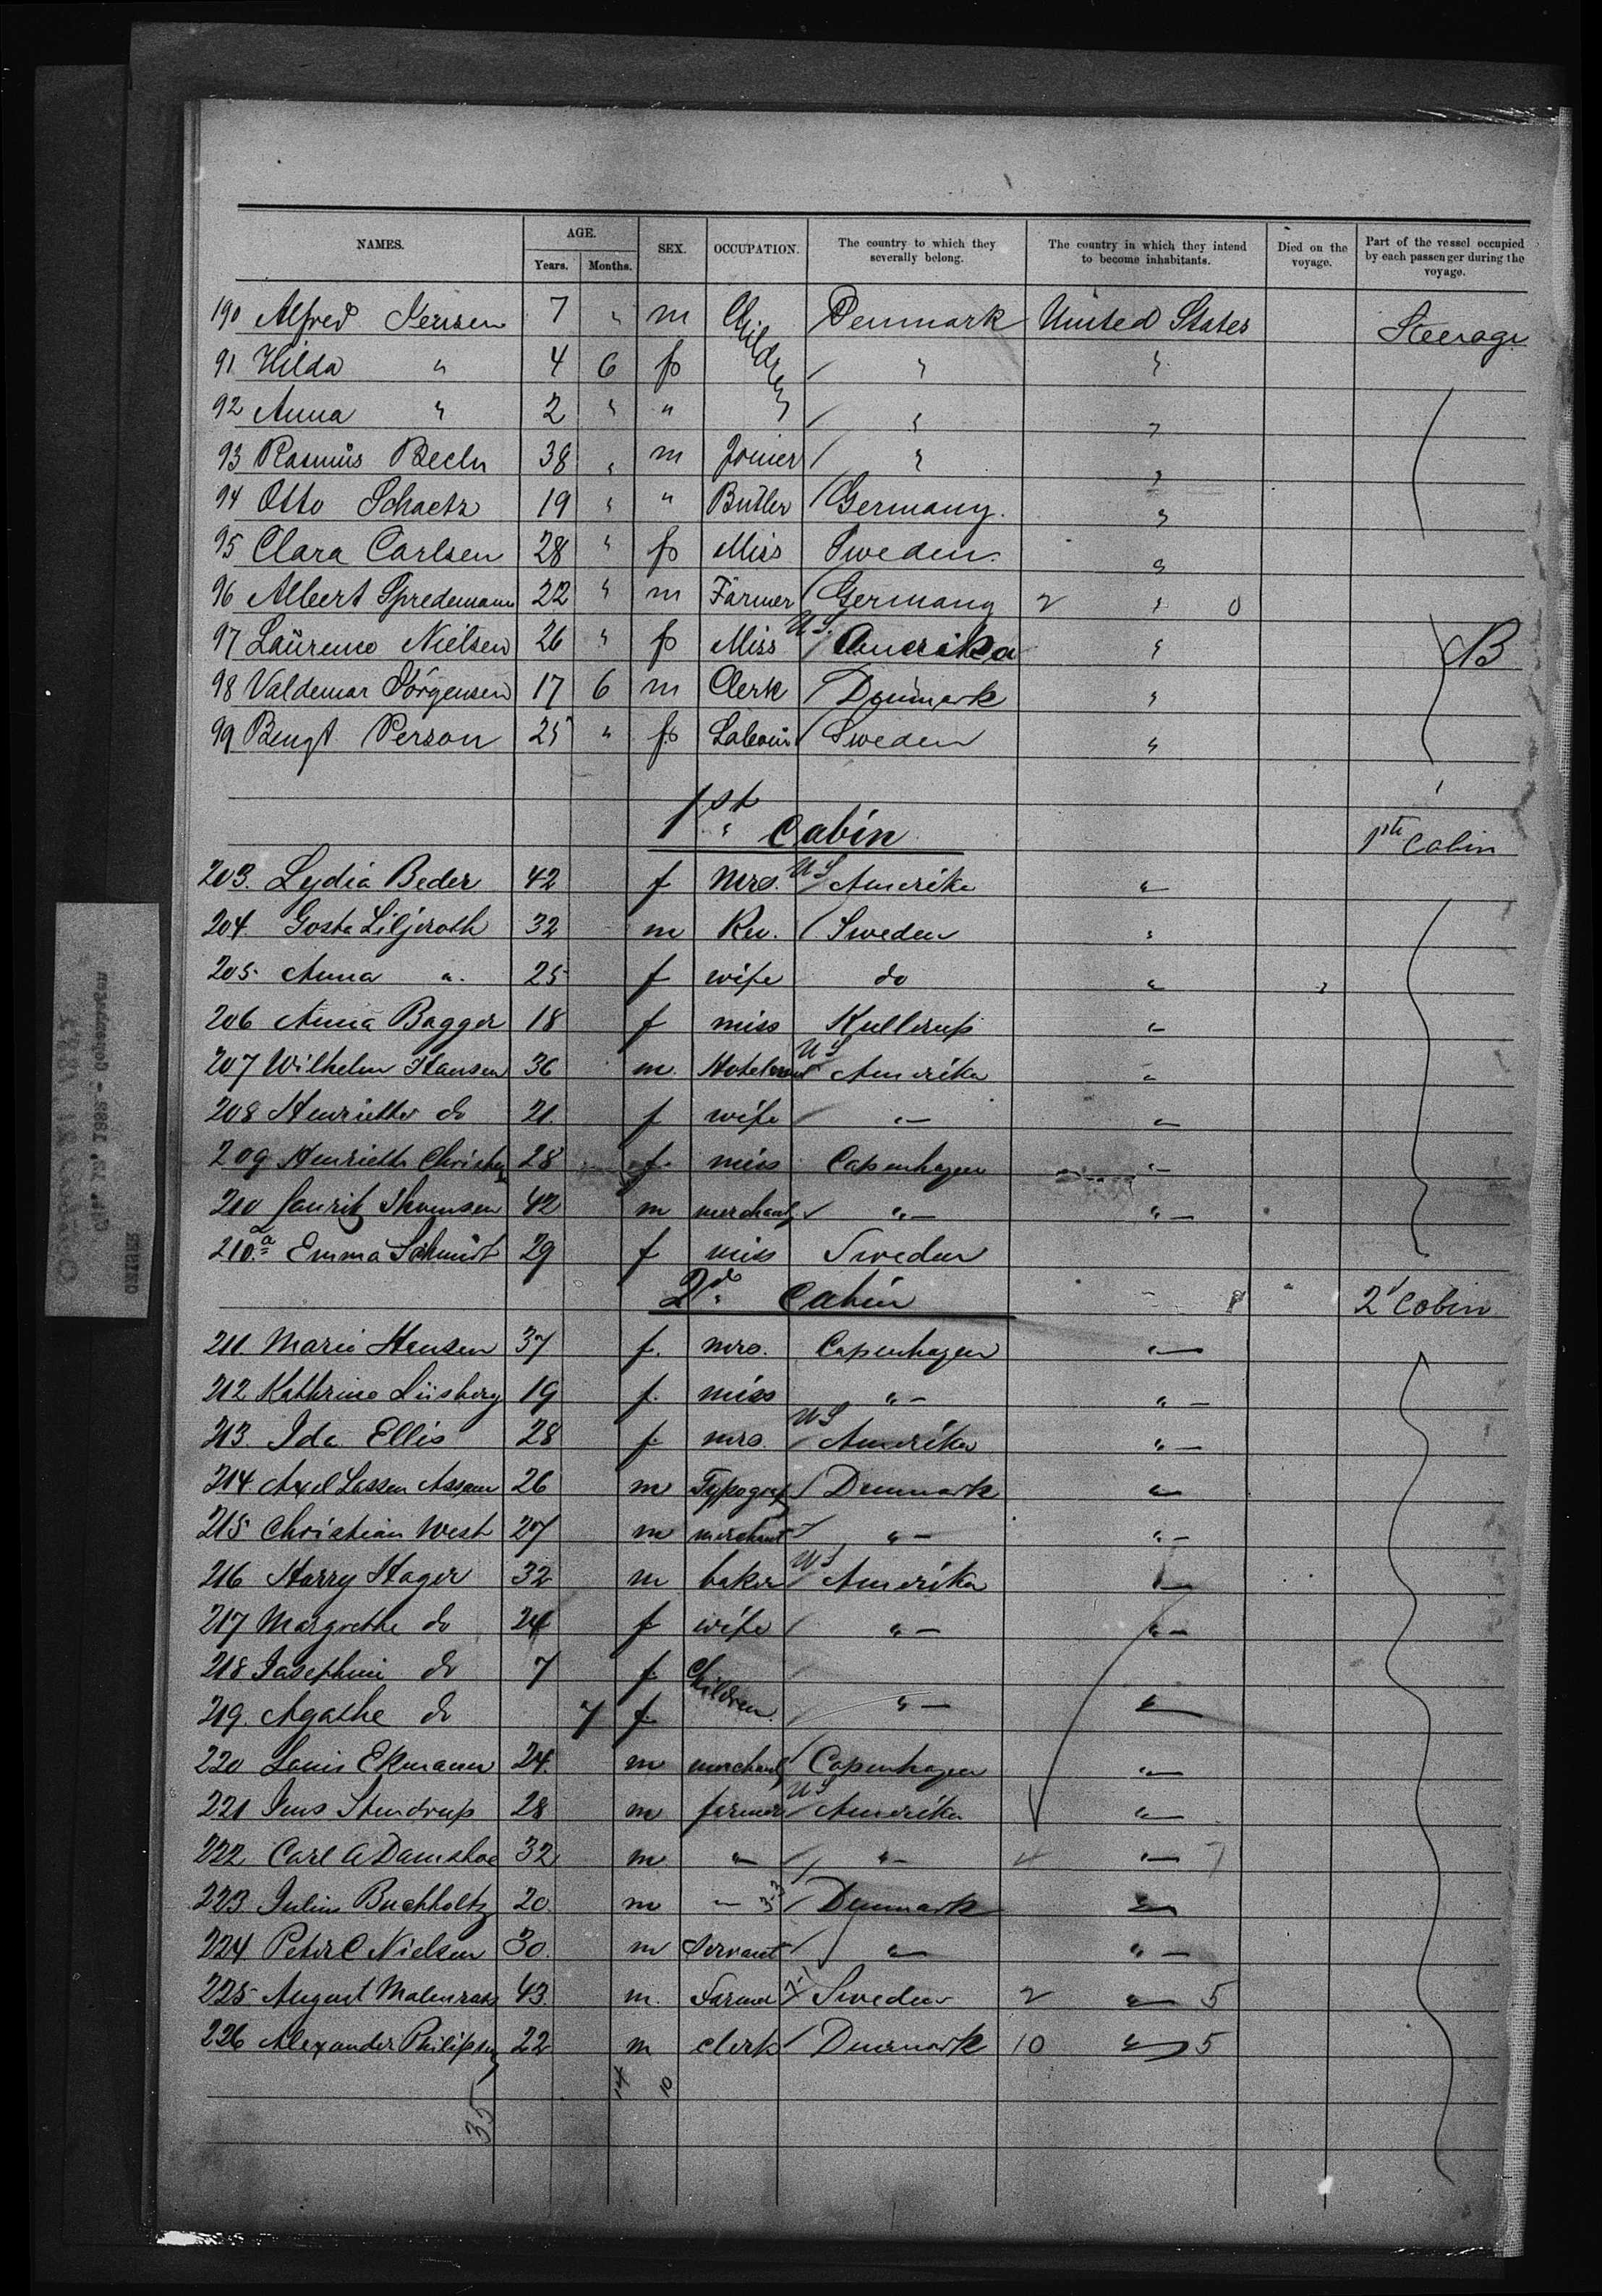 NAMES. AGE. SEX. OCCUPATION. The country to which they severally belong. The country in which they intend to become inhabitants. Died on the voyage. Part of the vessel occupied by each passenger during the voyage.
Years. Months.
190 Alfred Jensen 7 " m Children Denmark United States Steerage
91 Hilda " 4 6 f " "
92 Anna " 2 " " " "
93 Rasmus 38 " m Joiner " "
94 Otto Schaetz 19 " " Butler Germany. "
95 Clara Carlsen 28 " f Miss Sweden. "
96 Albert Spredemann 22 " m Farmer Germany 2 " 0
97 Laurine Nielsen 26 " f Miss U S. Amerika " B
98 Valdemar Jörgensen 17 6 m Clerk Denmark "
99 Bengt Person 25 " f Sweden "
1st Cabin 1ste Cabin
203. Lydia Beder 42 f Mrs. U S Amerika "
204. Gosta Liljeroth 32 m Rev. Sweden "
205. Anna ". 25 f wife do "
206 Anna Bagger 18 f miss Kullerup "
207 Wilhelm Hansen 36 m. U S Amerika "
208 Henriette do 21. f wife " "
209 Henriette 28 f. miss Capenhagen "
210 Thomsen 42 m merchant " "
210.a Emma Schmidt 29 f miss Sweden
2d Cabin 2d Cabin
211. Marie Hansen 37 f. mrs. Capenhagen "
212 Kathrine Liisberg 19 f. miss " "
213. Ida Ellis 28 f. mrs. U S Amerika "
214. Axel Lassen 26 m Typograf Denmark "
215 Christian West 27 m merchant " "
216 Harry Hager 32 m baker U S Amerika "
217 Margrethe do 24 f wife " "
218 Josephine do 7 f. Children.
219. Agathe do 7 f. " "
220 Louis Ekmann 24. m merchant Capenhagen "
221 Jens Stendrup 28 m farmer U S Amerika "
222 Carl A Damskoe 32 m " " 4 " 7
223 Julius Buchholtz 20. m " 33 Denmark "
224 Peter C Nielsen 30. m Servant " "
225 August 43. m. Farmer Sweden 2 " 5
226 Alexander Philipsen 22 m clerk Denmark 10 " 5
14 10
35